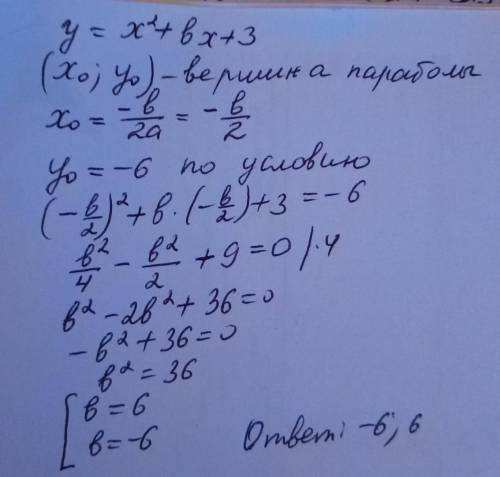 y = x² + вx + 3
(x₀; y₀) – вершина параболы
x₀ = -в/2a = -в/2
y₀ = -6 по условию
(-в/2)² + в · (-в/2) + 3 = -6
в²/4 - в²/2 + 9 = 0 | · 4
в² - 2в² + 36 = 0
-в² + 36 = 0
в² = 36
[ в = 6
в = -6
Ответ: -6; 6